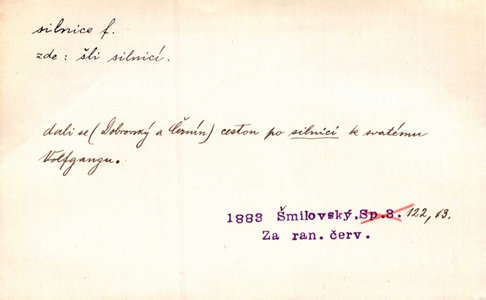 silnice f.
zde: šli silnicí.
dali se (Dobrovský a Černín) cestou po silnici k svatému
Volfgangu.
1883 Šmilovský, Sp.3. 122, 13.
Za ran. červ.